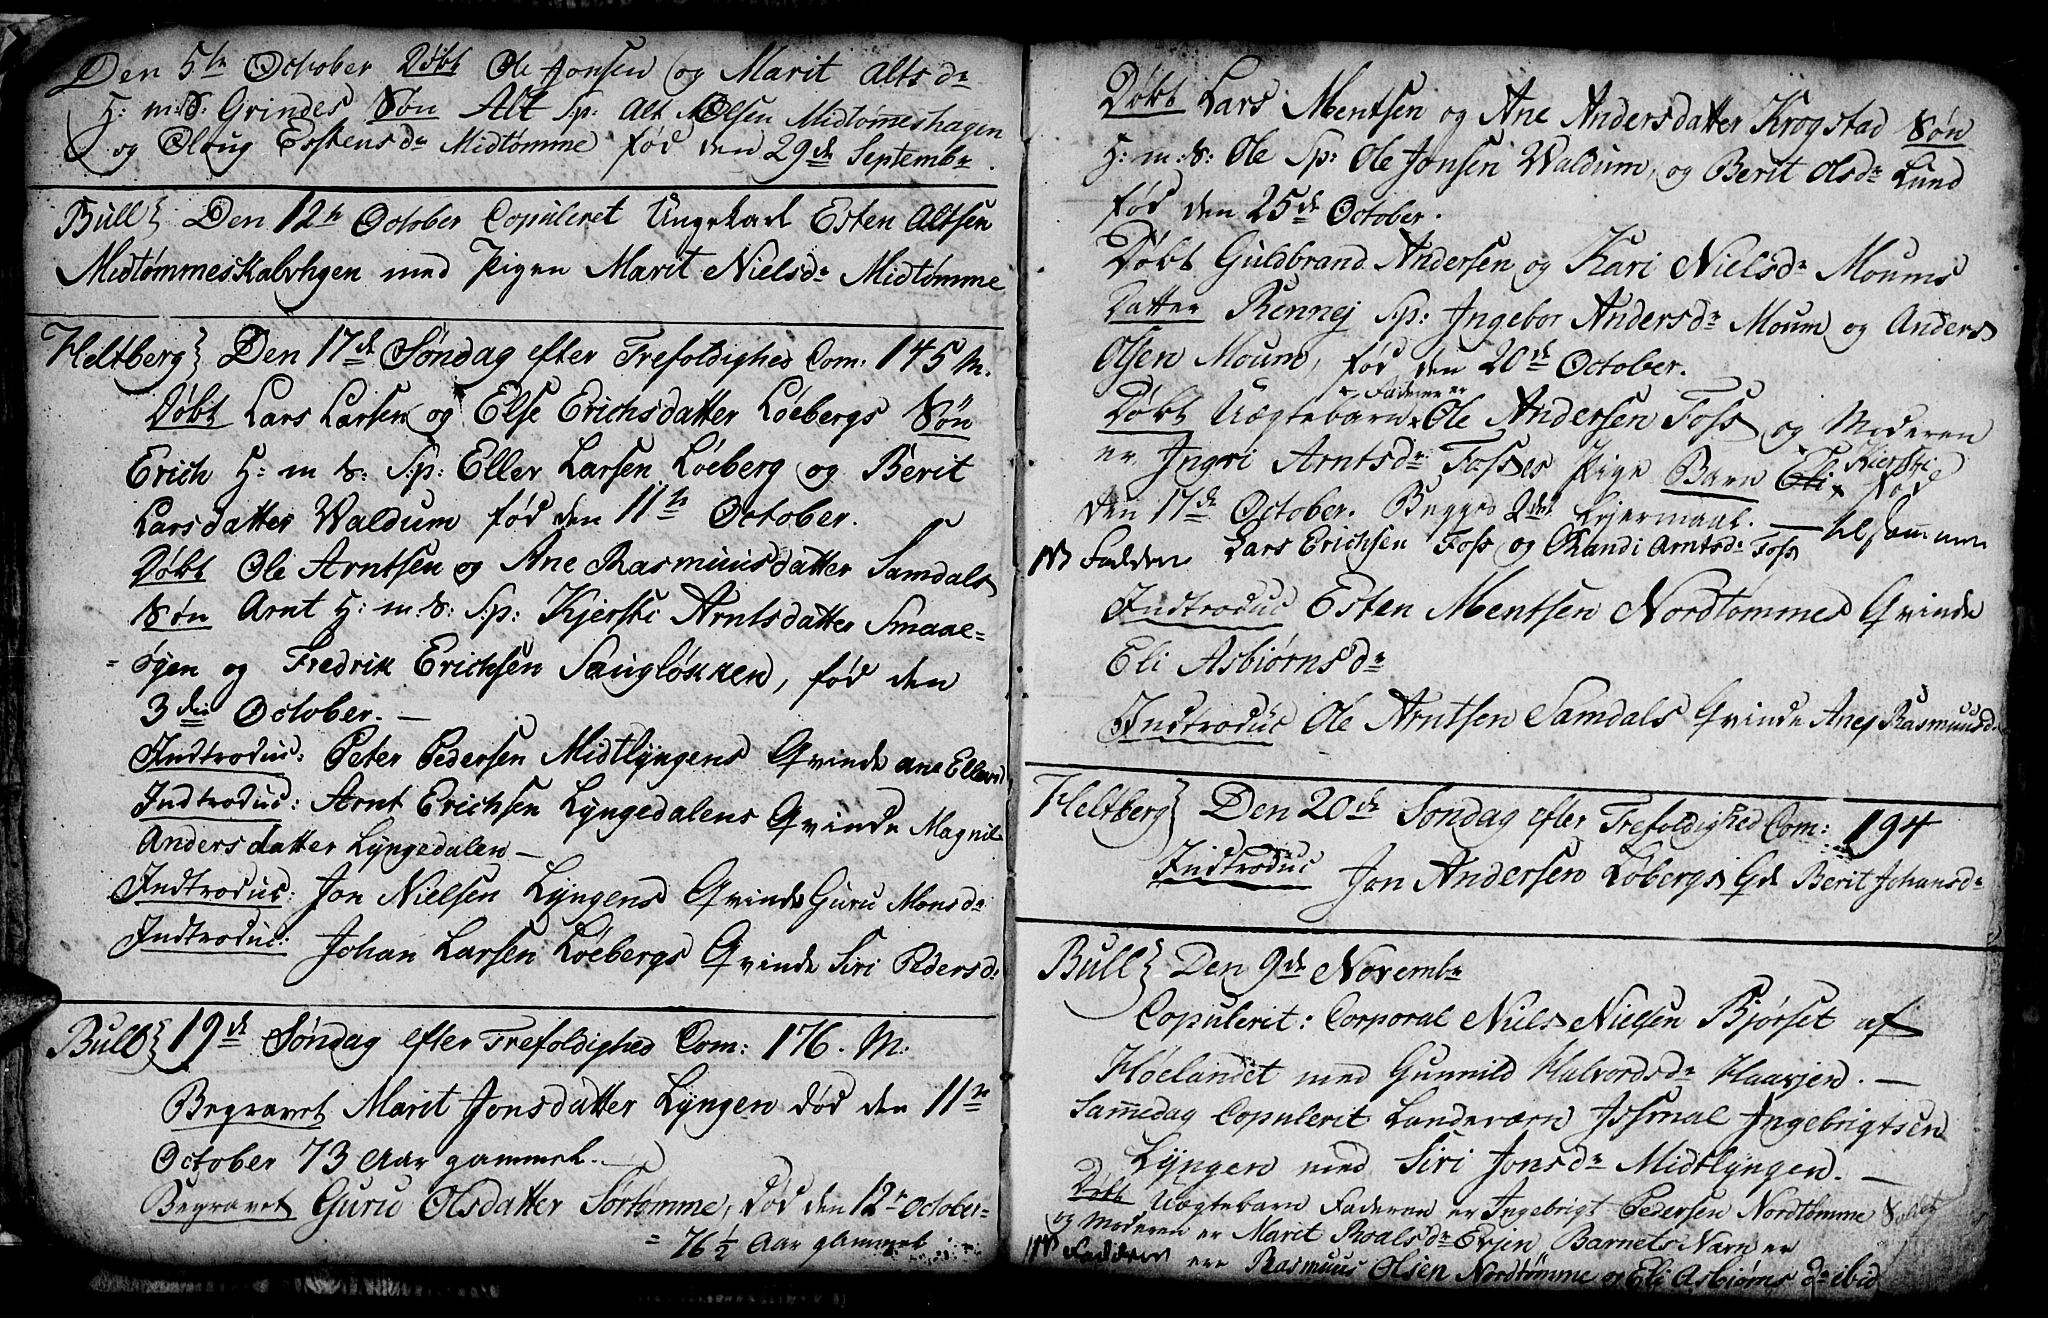 Den 5te October Døbt Ole Jonsen og Marit Altsdr
H: m: S: Grindes Søn Alt Sp: Alt Olsen Midtømeshagen
og Oloug Estensdr Midtømme fød den 29de Septembr.
Bull} Den 12te October Copuleret Ungekarl Esten Altsen
Midtømmeskalvhgen med Pigen Marit Nielsdr Midtømme
Heltberg} Den 17de Søndag efter Trefoldighed Com: 145 M.
Døbt Lars Larsen og Else Erichsdatter Løebergs Søn
Erich H: m S: Sp: Eller Larsen Løeberg og Berit
Larsdatter Waldum fød den 11te October.
Døbt Ole Arntsen og Ane Rasmuusdatter Samdals
Søn Arnt H: m: S: Sp: Kjersti Arntsdatter Smaae=
=øyen og Fredrik Erichsen Saugløkken, fød den
3die October. —
Indtroduc: Peter Pedersen Midtlyngens Qvinde Ane Ellevsd
Indtroduc: Arnt Erichsen Lyngedalens Qvinde Magnil
Andersdatter Lyngedalen —
Indtroduc: Jon Nielsen Lyngens Qvinde Guru Monsdr
Indtroduc: Johan Larsen Løebergs Qvinde Siri Pedersd:
Bull} 19de Søndag efter Trefoldighed Com: 176. M:
Begravet Marit Jonsdatter Lyngen død den 11te
October 73 Aar gammel. —
Begravet Guru Olsdatter Sørtømme, død den 12te October=
= 76 1/2 Aar gammel
Døbt Lars Mentsen og Ane Andersdatter Krogstad Søn
H: m: S: Ole Sp: Ole Jonsen Waldum, og Berit Olsdr Lund
fød den 25de October.
Døbt Guldbrand Andersen og Kari Nielsdr Moums
Datter Rennej Sp: Ingebor Andersdr Moum og Anders
Olsen Moum, fød den 20de October.
Faderen er
Døbt Uægtebarn Ole Andersen Foss og Moderen
er Ingri Arntsdr Fosses Pige Barn Eli Kiersti fød
den 17de October. Begges 2det Leyermaal. — tilsammen
NB Fadderne Lars Erichsen Foss og Randi Arntsdr Foss
Indtroduc Esten Mentsen Nordtømmes Qvinde
Eli Asbiørnsdr
Indtroduc Ole Arntsen Samdals Qvinde Ane Rasmuusdr
Heltberg} Den 20de Søndag efter Trefoldighed Com: 194
Indtroduc Jon Andersen Løbergs Qde Berit Johansdr
Bull} Den 9de Novembr
Copulerit: Corporal Niels Nielsen Bjørset af
Høelandet med Gunnild Halvordsdr Haavjen. —
Samedag Copulerit Landeværn Issmal Ingebrigtsen
Lyngen med Siri Jonsdr Midtlyngen. —
Døbt Uægtebarn Faderen er Ingebrigt Pedersen Nordtømme
og Moderen er Marit Roalsdr Erjen Barnets Navn er
NB Fadderne ere Rasmuus Olsen Nordtømme og Eli Asbiørnsdr ibid